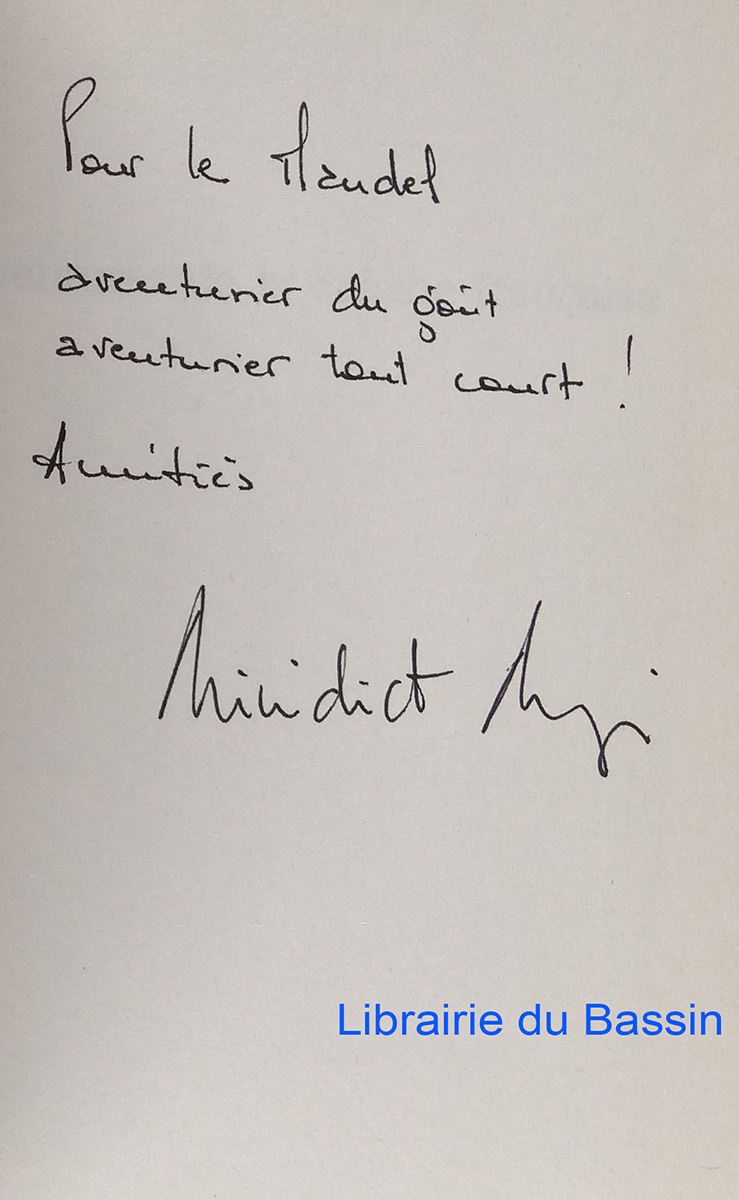 Pour le Mandel
aventurier du goût
aventurier tout court !
Amitiés
Bénédict
Librairie du Bassin